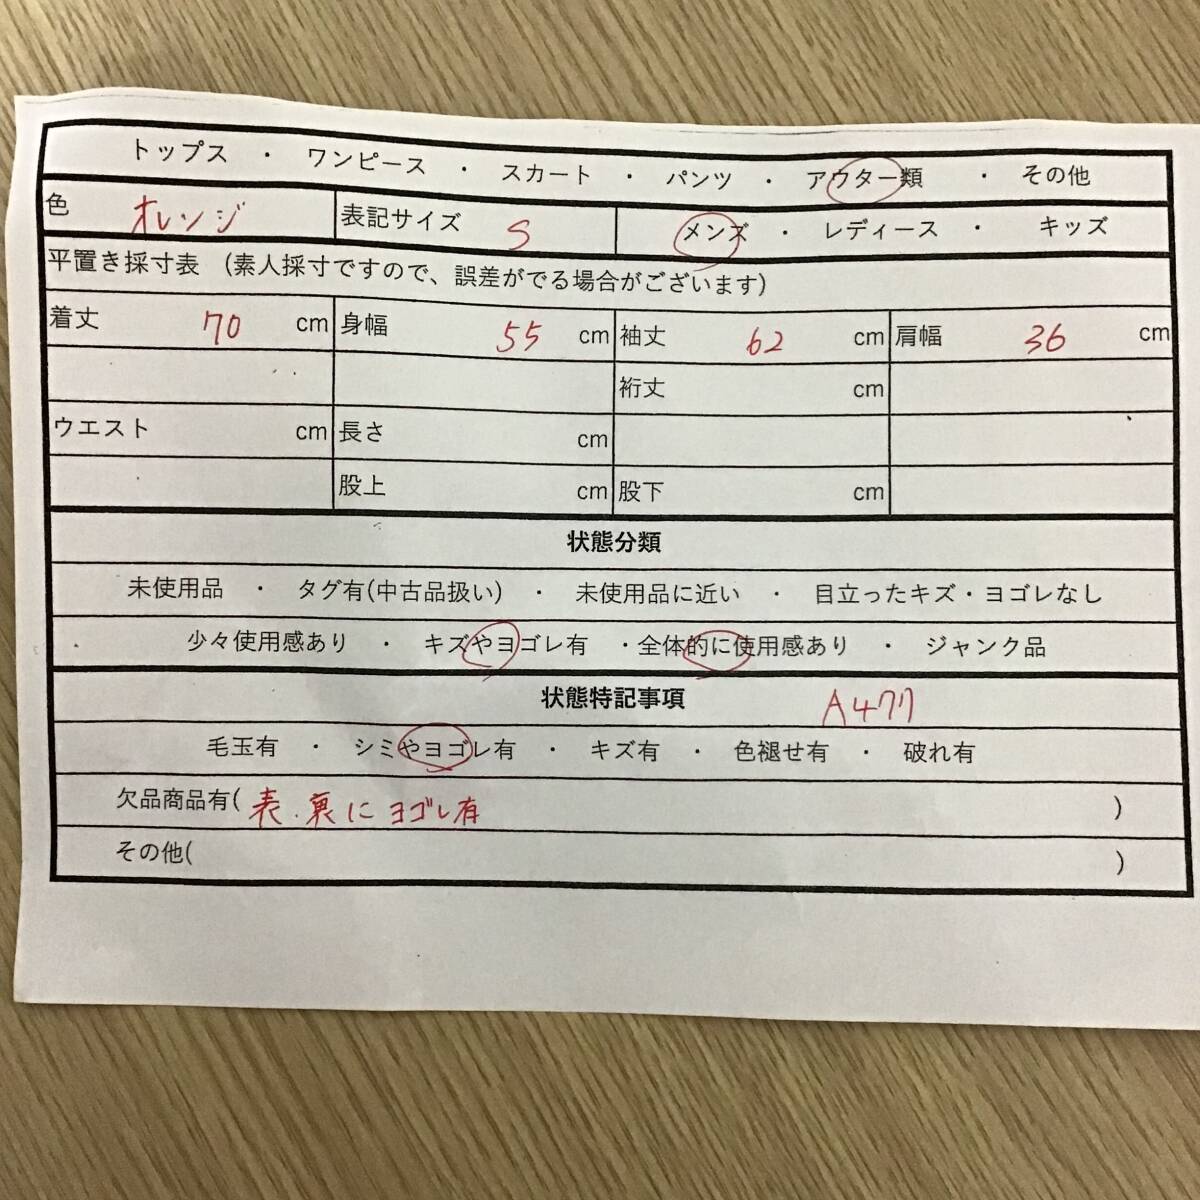 トップス ・ ワンピース ・ スカート ・ パンツ ・ アウター類 ・ その他
色 オレンジ 表記サイズ S メンズ ・ レディース ・ キッズ
平置き採寸表 (素人採寸ですので、誤差がでる場合がございます)
着丈 70 cm 身幅 55 cm 袖丈 62 cm 肩幅 36 cm
裄丈 cm
ウエスト cm 長さ cm
股上 cm 股下 cm
状態分類
未使用品 ・ タグ有(中古品扱い) ・ 未使用品に近い ・ 目立ったキズ・ヨゴレなし
少々使用感あり ・ キズやヨゴレ有 ・全体的に使用感あり ・ ジャンク品
状態特記事項 A477
毛玉有 ・ シミやヨゴレ有 ・ キズ有 ・ 色褪せ有 ・ 破れ有
欠品商品有( 表.裏にヨゴレ有 )
その他( )